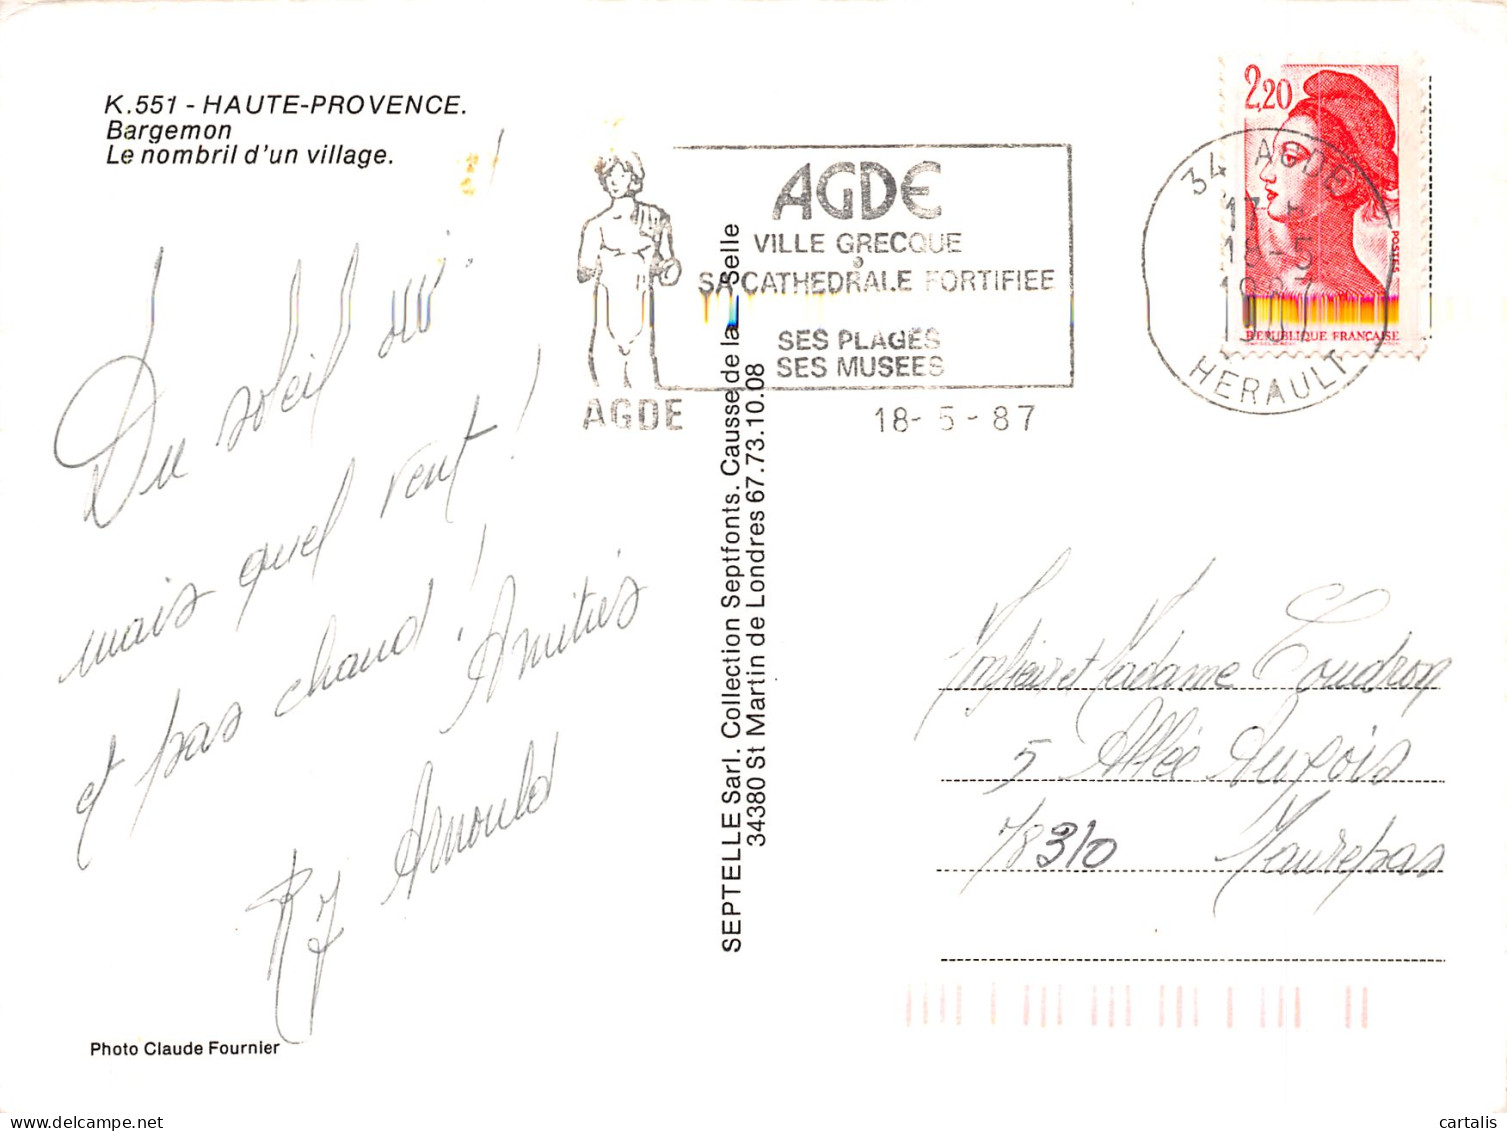 K.551 - HAUTE-PROVENCE.
Bargemon
Le nombril d'un village.
Du soleil oui !
mais quel vent !
et pas chaud ! Amitiés
RJ Arnould
Photo Claude Fournier
SEPTELLE Sarl. Collection Septfonts. Causse de la Selle
34380 St Martin de Londres 67.73.10.08
AGDE
AGDE
VILLE GRECQUE
SA CATHEDRALE FORTIFIEE
SES PLAGES
SES MUSEES
18-5-87
2,20
POSTES
REPUBLIQUE FRANÇAISE
34 AGDE
18-5
1987
HERAULT
Monsieur et Madame Coudron
5 Allée Dupois
78310 Maurepas
delcampe.net
cartalis